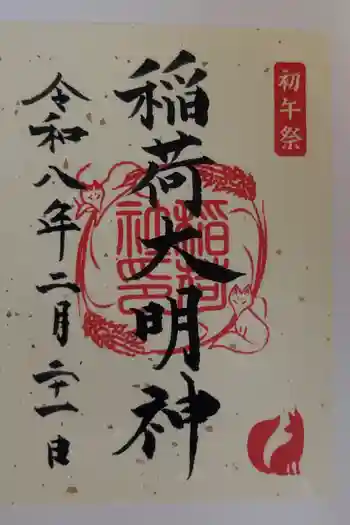 初午祭
稲荷大明神
稲荷社印
令和八年二月二十一日